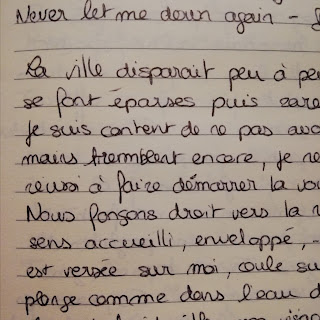 Never let me down again -
La ville disparait peu à pe
se font éparses puis rare
Je suis content de ne pas avo
mains tremblent encore, je ne
reussi à faire démarrer la vou
Nous fonçons droit vers la
sens accueilli, enveloppé,
est versée sur moi, coule su
plonge comme dans l'eau d